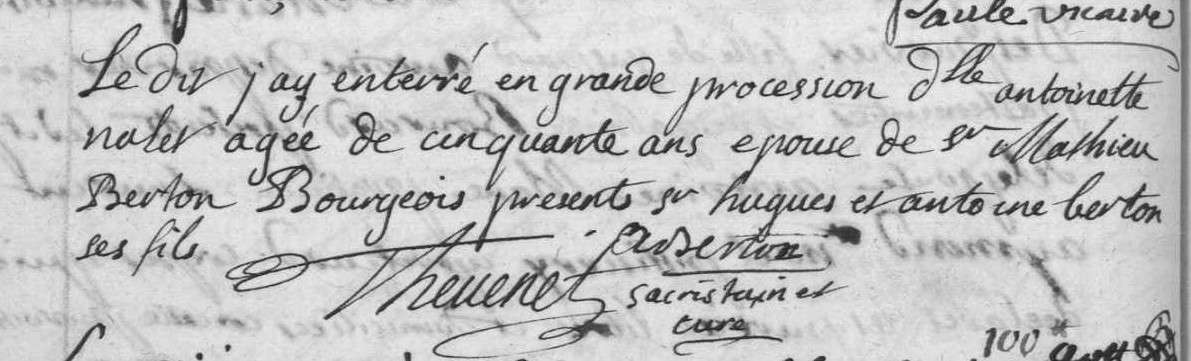 Paule vicaire
Le dit jay enterré en grande procession dlle antoinette
nalet agéé de cinquante ans epouse de sr Mathieu
Berton Bourgeois presents sr hugues et antoine berton
ses fils
Berton
Thevenet sacristain et
curé
100